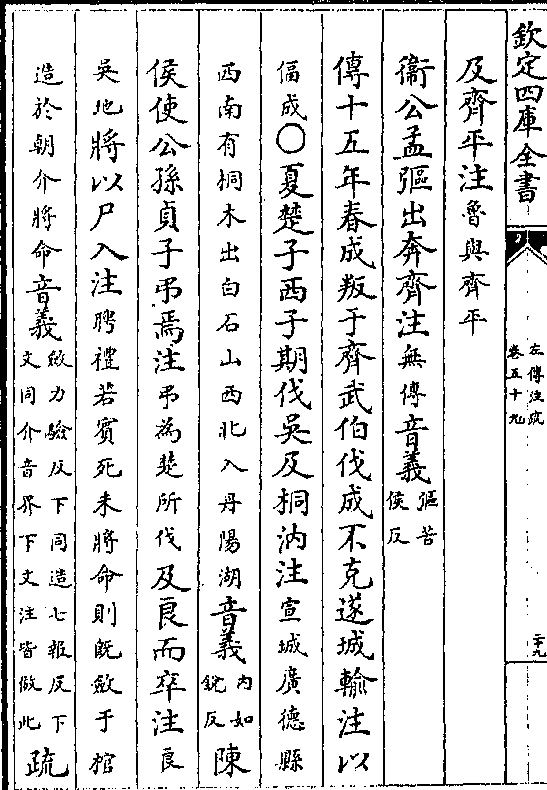 欽定四庫全書
左傳注疏
卷五十九
二十九
及齊平注魯與齊平
衞公孟彄出奔齊注無傳音義彄苦
侯反
傳十五年春成叛于齊武伯伐成不克遂城輸注以
偪成○夏楚子西子期伐吳及桐汭注宣城廣德縣
西南有桐木出白石山西北入丹陽湖音義汭如
銳反陳
侯使公孫貞子弔焉注弔為楚所伐及良而卒注良
吳地將以尸入注聘禮若賓死未將命則既斂于棺
造於朝介將命音義斂力驗反下同造七報反下
文同介音界下文注皆倣此疏